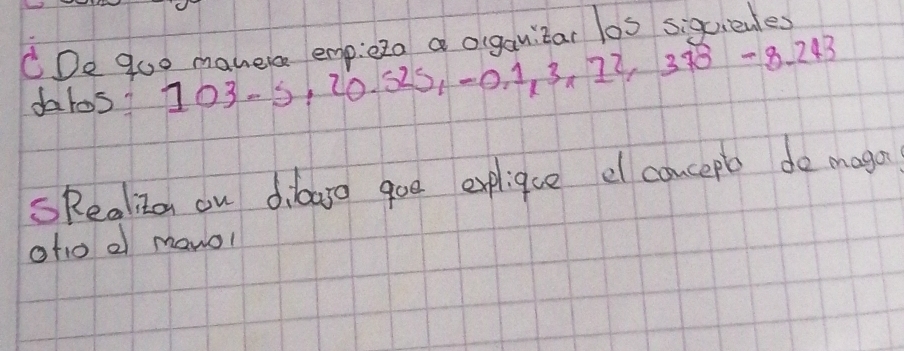 ¿De que manera empieza a organizar los siguientes
datos: 103-5, 20.525, -0,1, 3, 22, 398 -8.243
5 Realiza un dibujo que explique el concepto de mayor
otro el menor